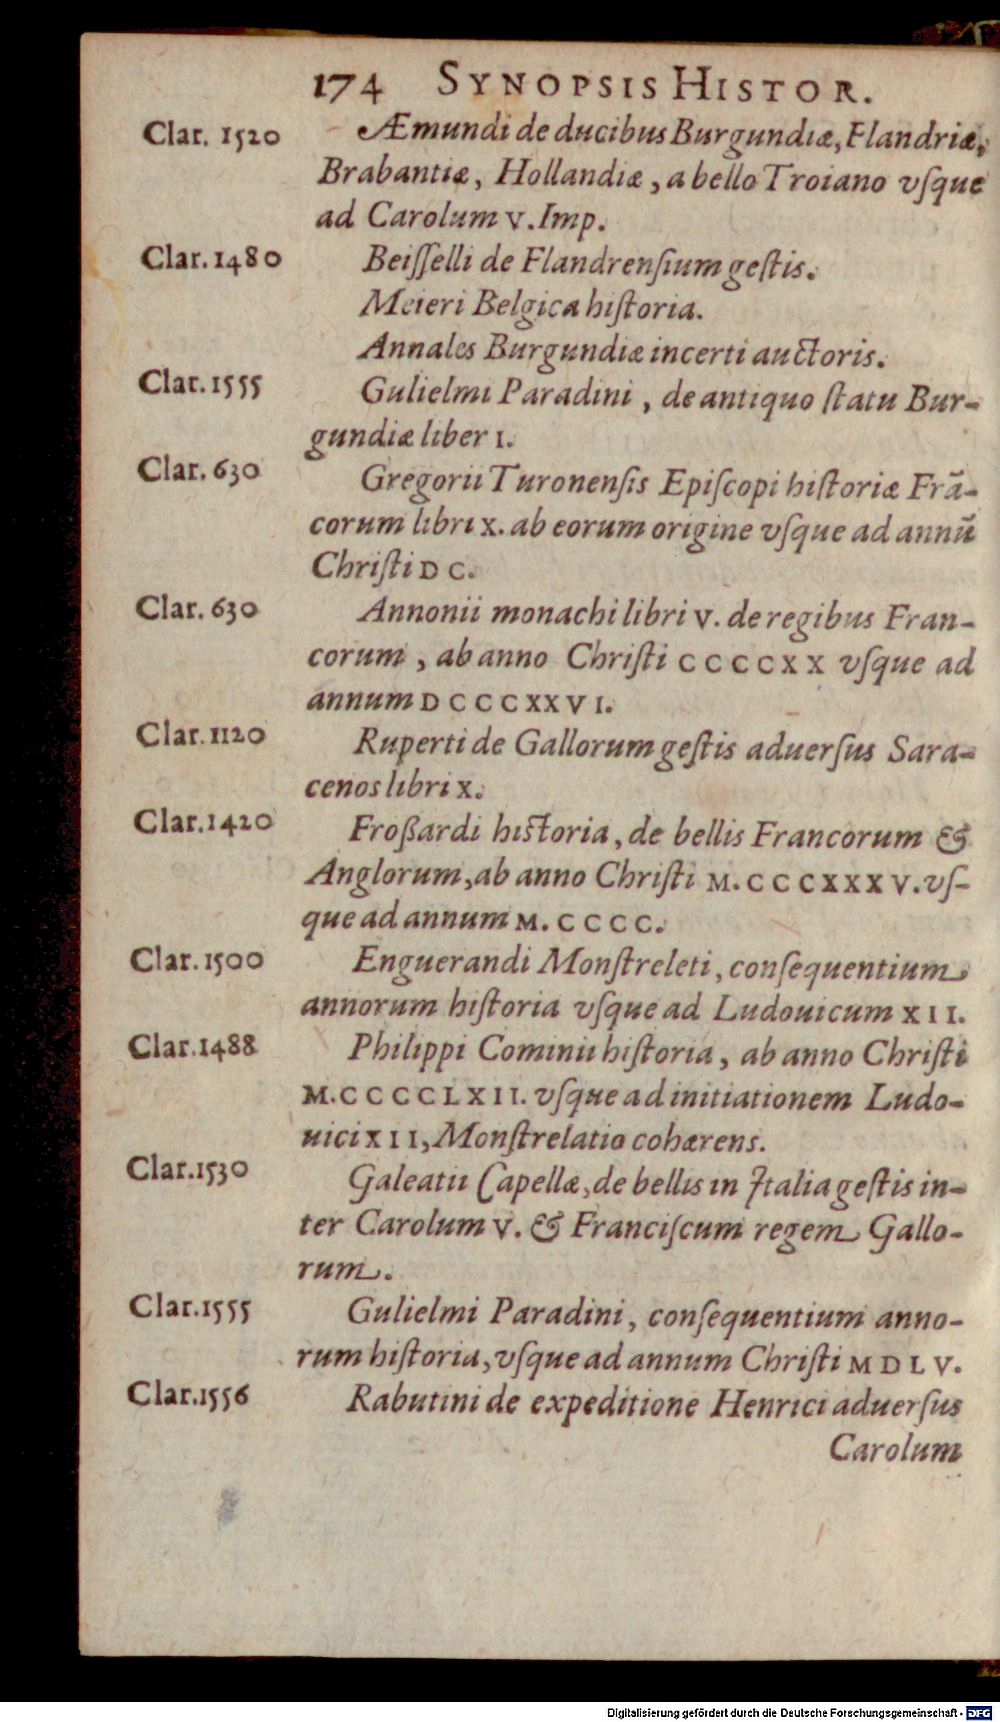 174 SYNOPSIS HISTOR.
Clar. 1520 Æmundi de ducibus Burgundiæ, Flandriæ,
Brabantiæ, Hollandiæ, a bello Troiano vſque
ad Carolum V. Imp.
Clar. 1480 Beiſſelli de Flandrenſium geſtis.
Meieri Belgica hiſtoria.
Annales Burgundiæ incerti auctoris.
Clar. 1555 Gulielmi Paradini, de antiquo ſtatu Bur-
gundiæ liber I.
Clar. 630 Gregorii Turonenſis Epiſcopi hiſtoriæ Frā-
corum libri X. ab eorum origine vſque ad annū
Chriſti D C.
Clar. 630 Annonii monachi libri V. de regibus Fran-
corum, ab anno Chriſti C C C C X X vſque ad
annum D C C C X X V I.
Clar. 1120 Ruperti de Gallorum geſtis aduerſus Sara-
cenos libri X.
Clar. 1420 Froßardi hiſtoria, de bellis Francorum &
Anglorum, ab anno Chriſti M. C C C X X X V. vſ-
que ad annum M. C C C C.
Clar. 1500 Enguerandi Monſtreleti, conſequentium
annorum hiſtoria vſque ad Ludouicum X I I.
Clar. 1488 Philippi Cominii hiſtoria, ab anno Chriſti
M. C C C C L X I I. vſque ad initiationem Ludo-
uici X I I, Monſtrelatio cohærens.
Clar. 1530 Galeatii Capellæ, de bellis in Italia geſtis in-
ter Carolum V. & Franciſcum regem Gallo-
rum.
Clar. 1555 Gulielmi Paradini, conſequentium anno-
rum hiſtoria, vſque ad annum Chriſti M D L V.
Clar. 1556 Rabutini de expeditione Henrici aduerſus
Carolum
Digitalisierung gefördert durch die Deutsche Forschungsgemeinschaft - DFG